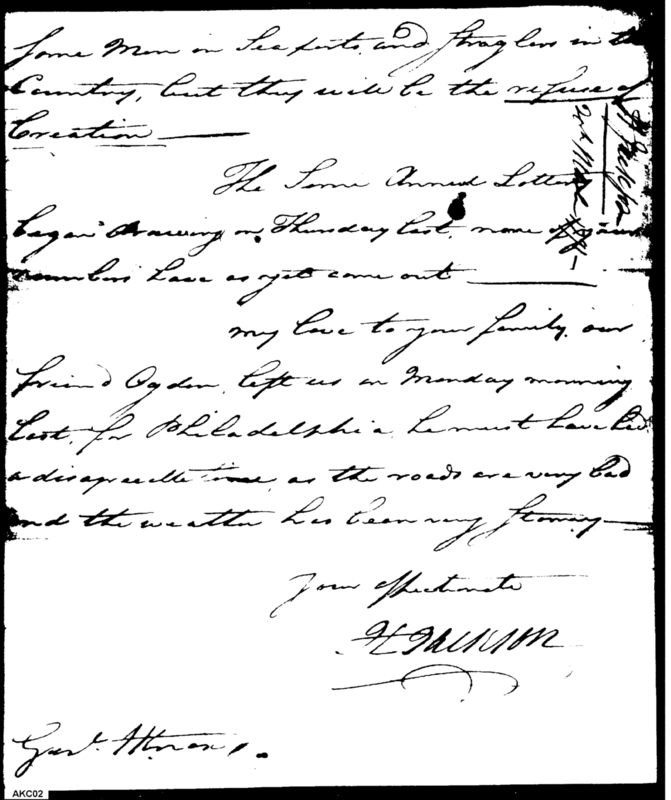 Some Men in Seaports and Straglers in the
Country, but they will be the refuse of
Creation —
The Semi Annual Lottery
began drawing on Thursday last, none of your
numbers have as yet come out —
my love to your family. our
friend Ogden left us on Monday morning
last, for Philadelphia, he must have had
a disagreeable time, as the roads are very bad
and the weather has been very Stormy —
Your affectionate
H JACKSON
Genl.
H Jackson
AKC02